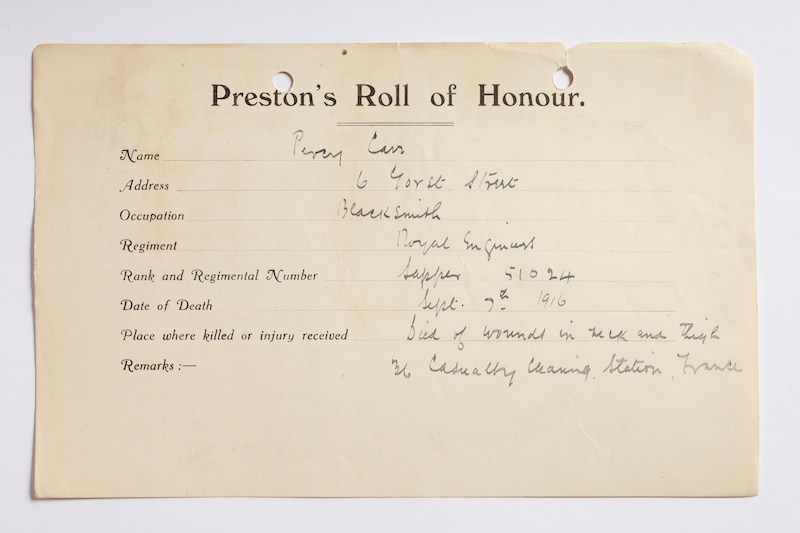 Preston's Roll of Honour.
Name Percy Carr
Address 6 Gorst Street
Occupation Blacksmith
Regiment Royal Engineers
Rank and Regimental Number Sapper 51024
Date of Death Sept. 7th 1916
Place where killed or injury received Died of wounds in neck and thigh
Remarks :— 36 Casualty Clearing Station, France